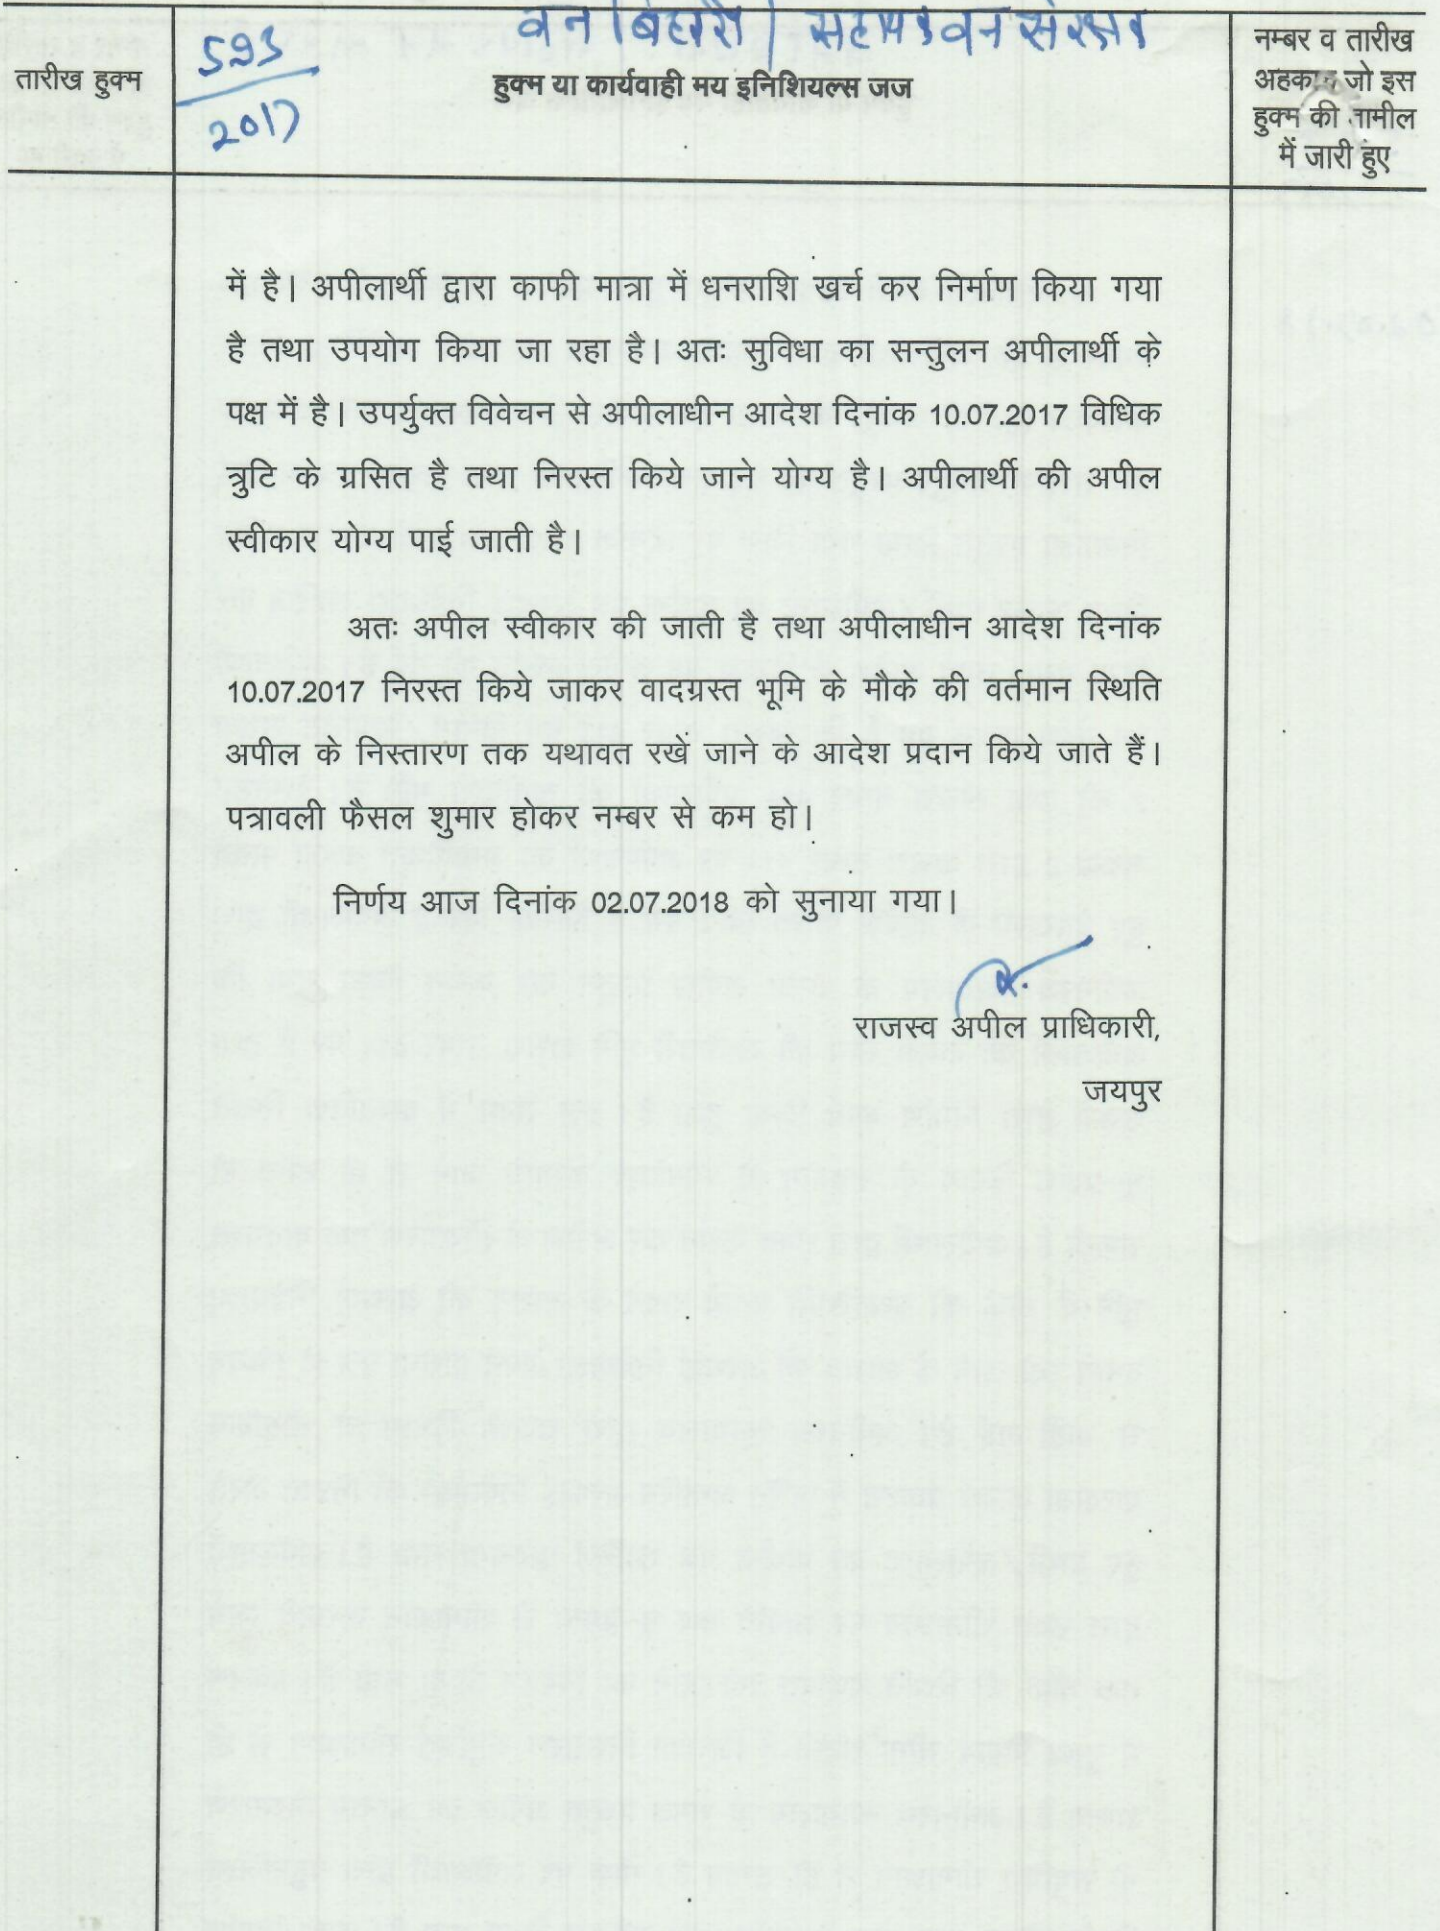 वन बिहारी / सहायक वन संरक्षक
तारीख हुक्म
593
2017
हुक्म या कार्यवाही मय इनिशियल्स जज
नम्बर व तारीख
अहकाम जो इस
हुक्म की तामील
में जारी हुए
में है। अपीलार्थी द्वारा काफी मात्रा में धनराशि खर्च कर निर्माण किया गया
है तथा उपयोग किया जा रहा है। अतः सुविधा का सन्तुलन अपीलार्थी के
पक्ष में है। उपर्युक्त विवेचन से अपीलाधीन आदेश दिनांक 10.07.2017 विधिक
त्रुटि के ग्रसित है तथा निरस्त किये जाने योग्य है। अपीलार्थी की अपील
स्वीकार योग्य पाई जाती है।
अतः अपील स्वीकार की जाती है तथा अपीलाधीन आदेश दिनांक
10.07.2017 निरस्त किये जाकर वादग्रस्त भूमि के मौके की वर्तमान स्थिति
अपील के निस्तारण तक यथावत रखें जाने के आदेश प्रदान किये जाते हैं।
पत्रावली फैसल शुमार होकर नम्बर से कम हो।
निर्णय आज दिनांक 02.07.2018 को सुनाया गया।
राजस्व अपील प्राधिकारी,
जयपुर